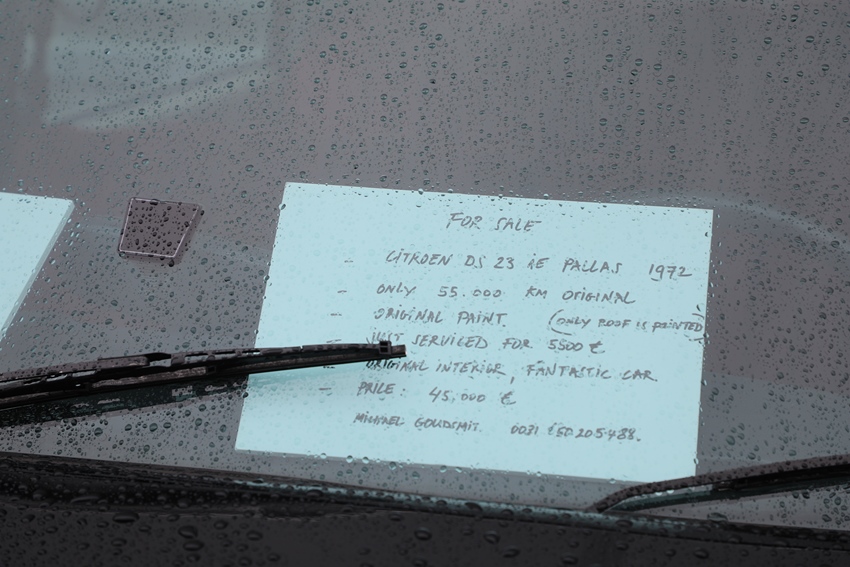 FOR SALE
- CITROEN DS 23 iE PALLAS 1972
- ONLY 55.000 KM ORIGINAL
- ORIGINAL PAINT. (ONLY ROOF IS PAINTED)
JUST SERVICED FOR 5500 €
- ORIGINAL INTERIOR, FANTASTIC CAR
- PRICE: 45.000 €
MICHAEL GOUDSMIT. 0031